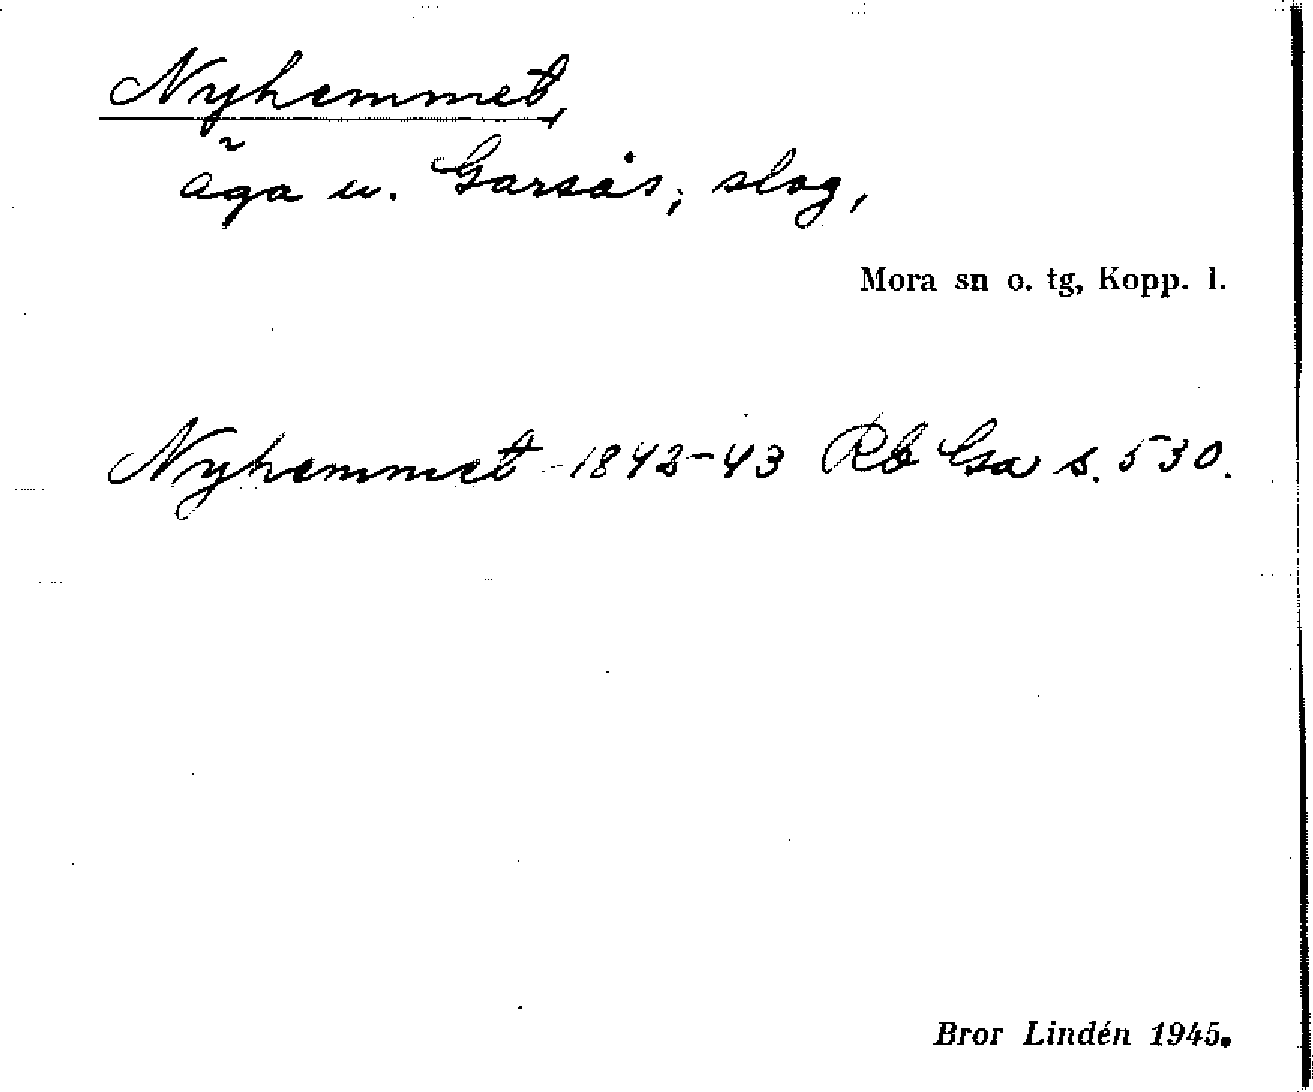 Nyhemmet,
äga u. Garsås; slog,
Mora sn o. tg, Kopp. l.
Nyhemmet 1842-43 Rb Gsa s. 530.
Bror Lindén 1945.